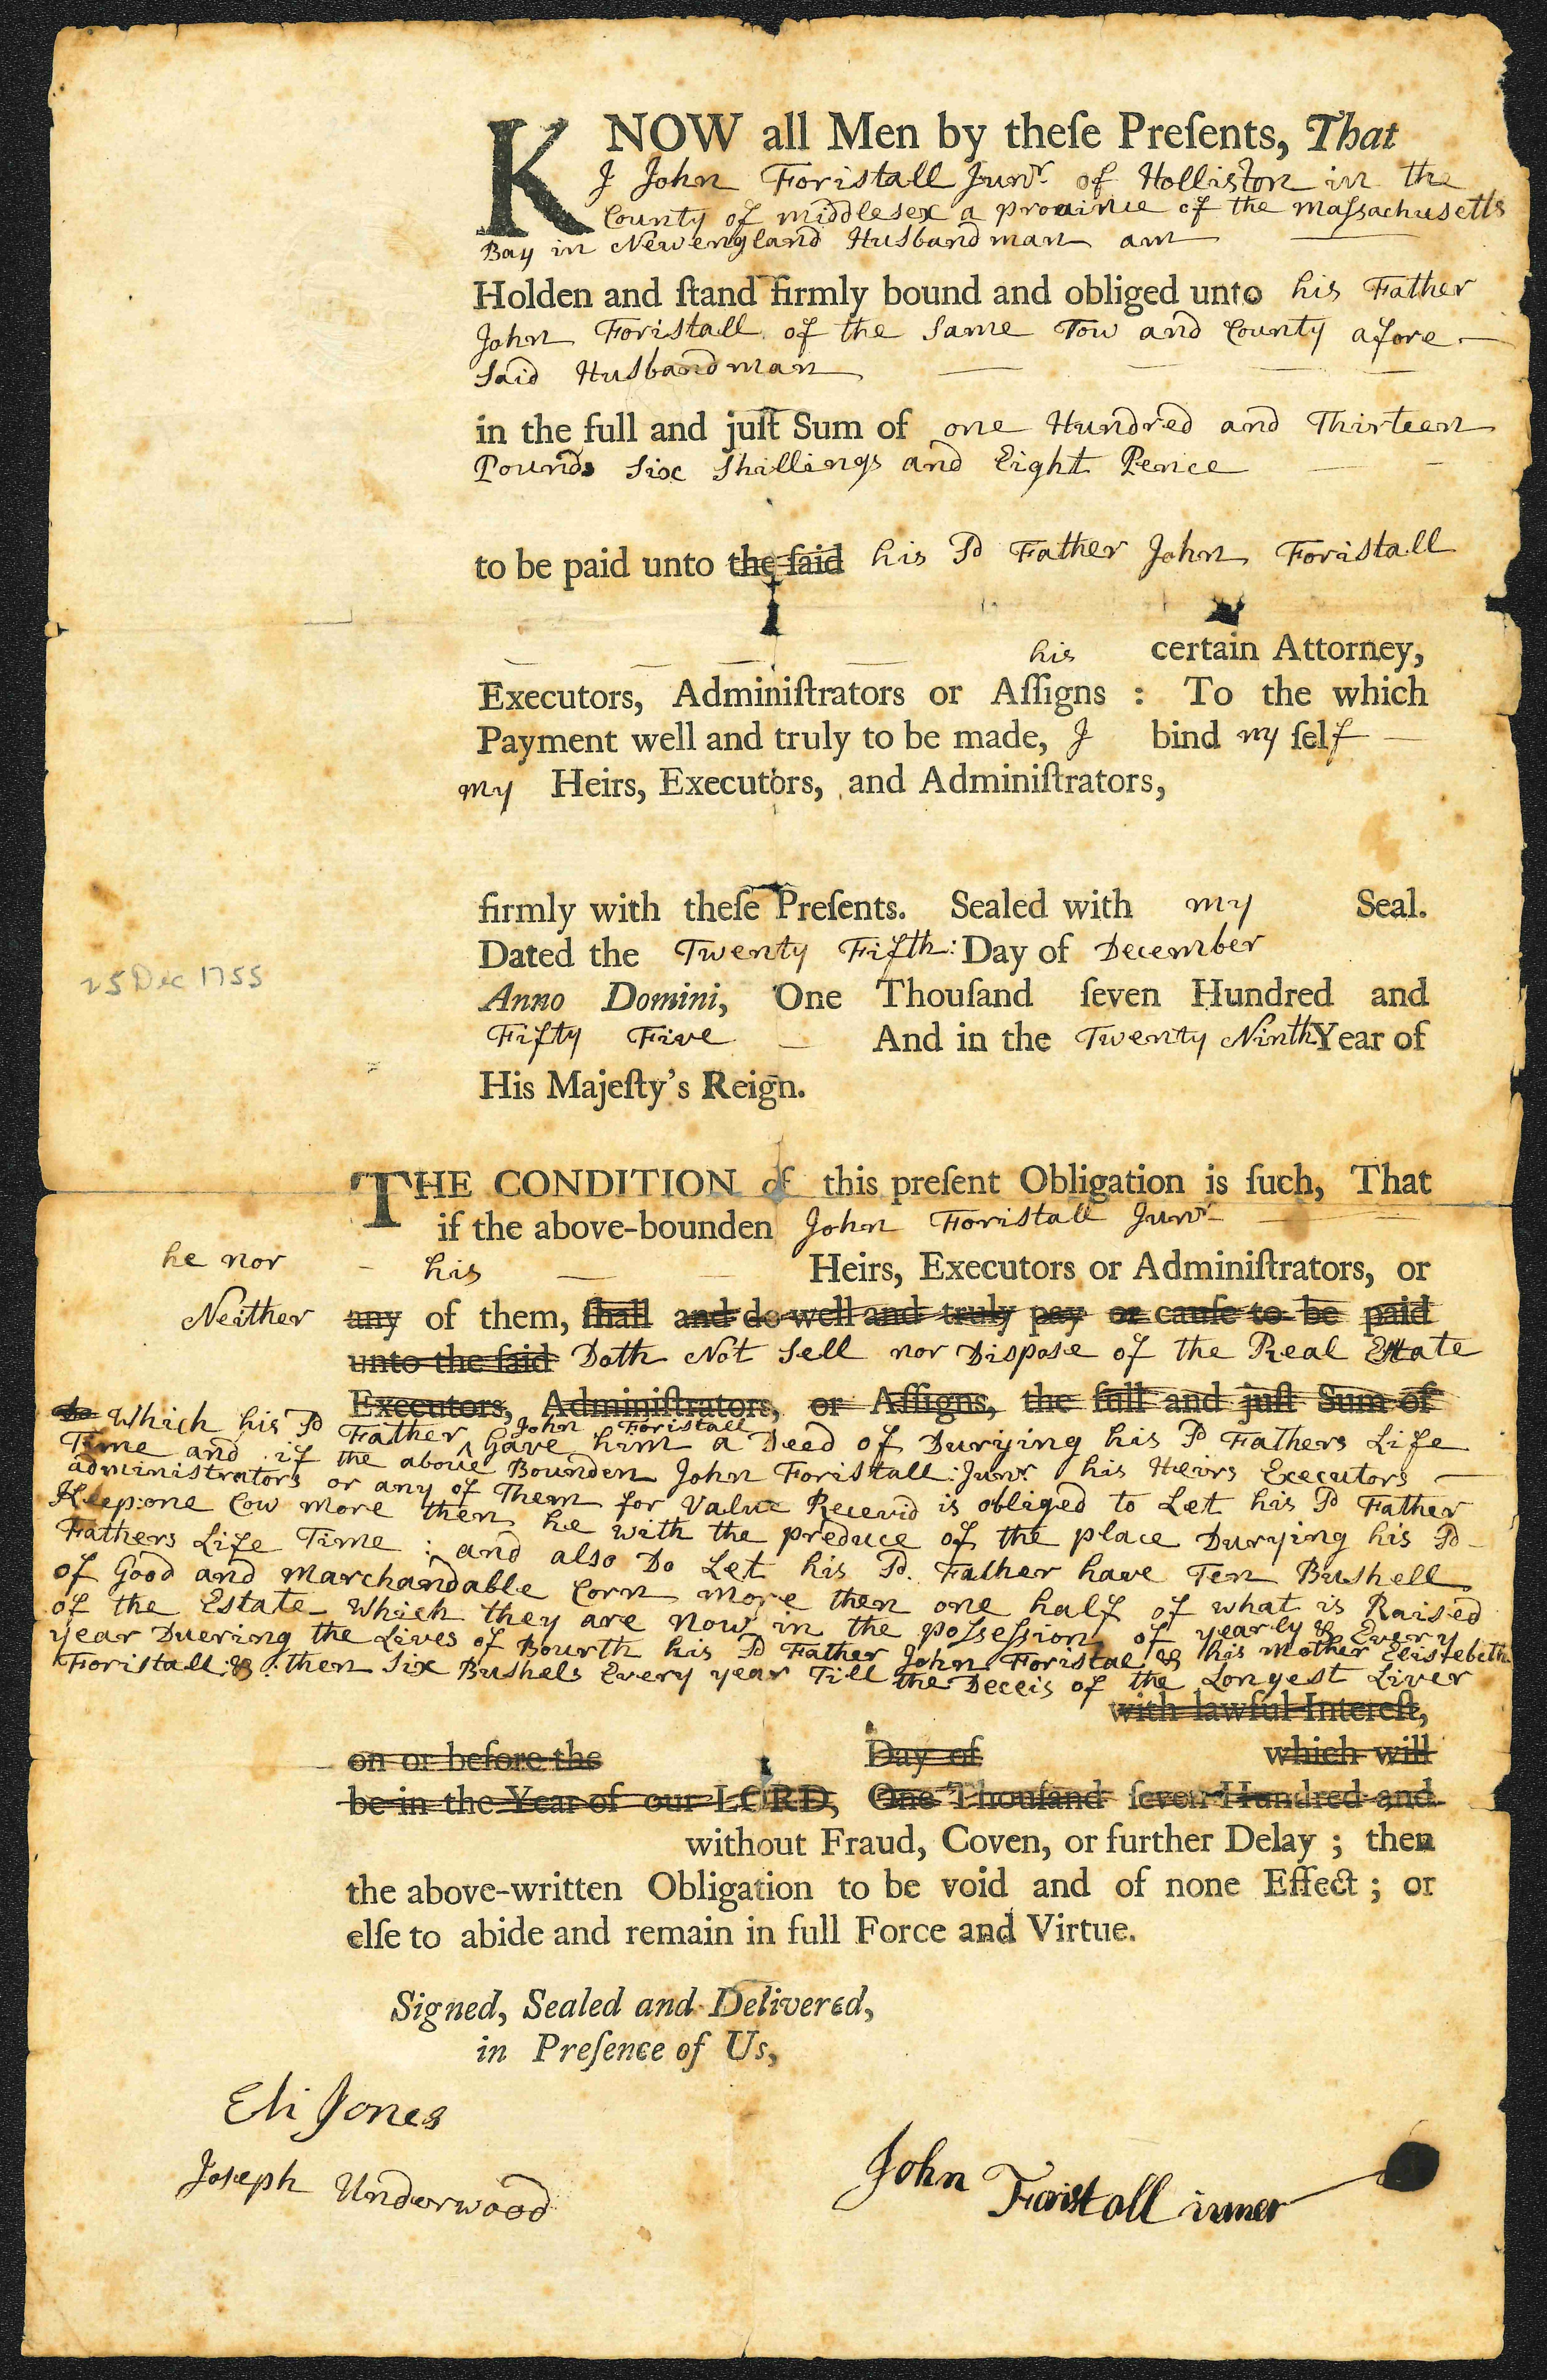 KNOW all Men by theſe Preſents, That
I John Foristall Junr. of Holliston in the
County of middlesex a prouince of the maſsachusetts
Bay in Newengland Husbandman am
Holden and ſtand firmly bound and obliged unto his Father
John Foristall of the Same Tow and County afore
Said Husbandman
in the full and juſt Sum of one Hundred and Thirteen
Pounds Six Shillings and Eight Pence
to be paid unto the ſaid his Sd Father John Foristall
his certain Attorney,
Executors, Adminiſtrators or Aſſigns : To the which
Payment well and truly to be made, I bind my ſelf
my Heirs, Executors, and Adminiſtrators,
firmly with theſe Preſents. Sealed with my Seal.
Dated the Twenty Fifth: Day of December
25 Dec 1755
Anno Domini, One Thouſand ſeven Hundred and
Fifty Five And in the Twenty Ninth Year of
His Majeſty's Reign.
THE CONDITION of this preſent Obligation is ſuch, That
if the above-bounden John Foristall Junr
he nor his Heirs, Executors or Adminiſtrators, or
Neither any of them, ſhall and do well and truly pay or cauſe to be paid
unto the ſaid Doth Not Sell nor Dispose of the Real Estate
Executors, Adminiſtrators, or Aſſigns, the full and juſt Sum of
Which his Sd Father John Foristall Gave him a Deed of Durying his Sd Fathers Life
Time and if the aboue Bounden John Foristall: Junr. his Heirs Executors
administrators or any of Them for Value Receivd is obliged to Let his Sd Father
Keep: one Cow more then he with the preduce of the place Durying his Sd
Fathers Life Time : and also Do Let his Sd. Father have Ten Bushell
of Good and marchandable Corn more then one half of what is Raised
of the Estate Which they are now in the poſseſsion of yearly & Every
year Duering the Lives of Bourth his Sd Father John Foristal & his mother Elisebeth
Foristall: & : then Six Bushels Every year Till the Deceis of the Longest Liver
with lawful Intereſt,
on or before the Day of which will
be in the Year of our LORD, One Thouſand ſeven Hundred and
without Fraud, Coven, or further Delay ; then
the above-written Obligation to be void and of none Effect ; or
elſe to abide and remain in full Force and Virtue.
Signed, Sealed and Delivered,
in Preſence of Us,
Eli Jones
Joseph Underwood
John Foristall iuner